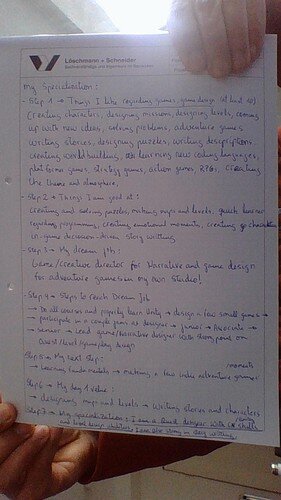 Löschmann + Schneider
Sachverständige und Ingenieure im Bauwesen
My Specialization:
- Step 1 → Things I like regarding games, gamedesign (at least 10)
Creating characters, designing missions, designing levels, coming
up with new ideas, solving problems, adventure games
writing stories, designing puzzles, writing descriptions,
creating worldbuilding, learning new coding languages,
platform games, strategy games, action games RPGs, creating
the theme and atmosphere.
- Step 2 → Things I am good at:
creating and solving puzzles, making maps and levels, quick learner
regarding programming, creating emotional moments, creating characters
in-game decision-driven story writing
- Step 3 → My dream job:
Game/creative director for Narrative and game design
for adventure games in my own studio!
- Step 4 → Steps to reach Dream Job
→ Do all courses and properly learn Unity → design a few small games →
→ participate in a couple jams as designer → junior → Associate →
→ senior → Lead game/narrative designer with strong focus on
Quest/level/gameplay design
Step 5 → My next step:
→ Learning fundamentals → making a few indie adventure games
moments
Step 6 → My day 1 value:
→ designing maps and levels → writing stories and characters
Step 7 → My specialization: I am a Quest designer with skills
and level design abilities. I am also strong in story writing.